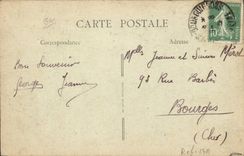 CARTE POSTALE
Correspondance
Adresse
Bon Souvenir
Georges Jeanne
Melles Jeanne et Simone
93 Rue Barbès
Bourges
(Cher)
10